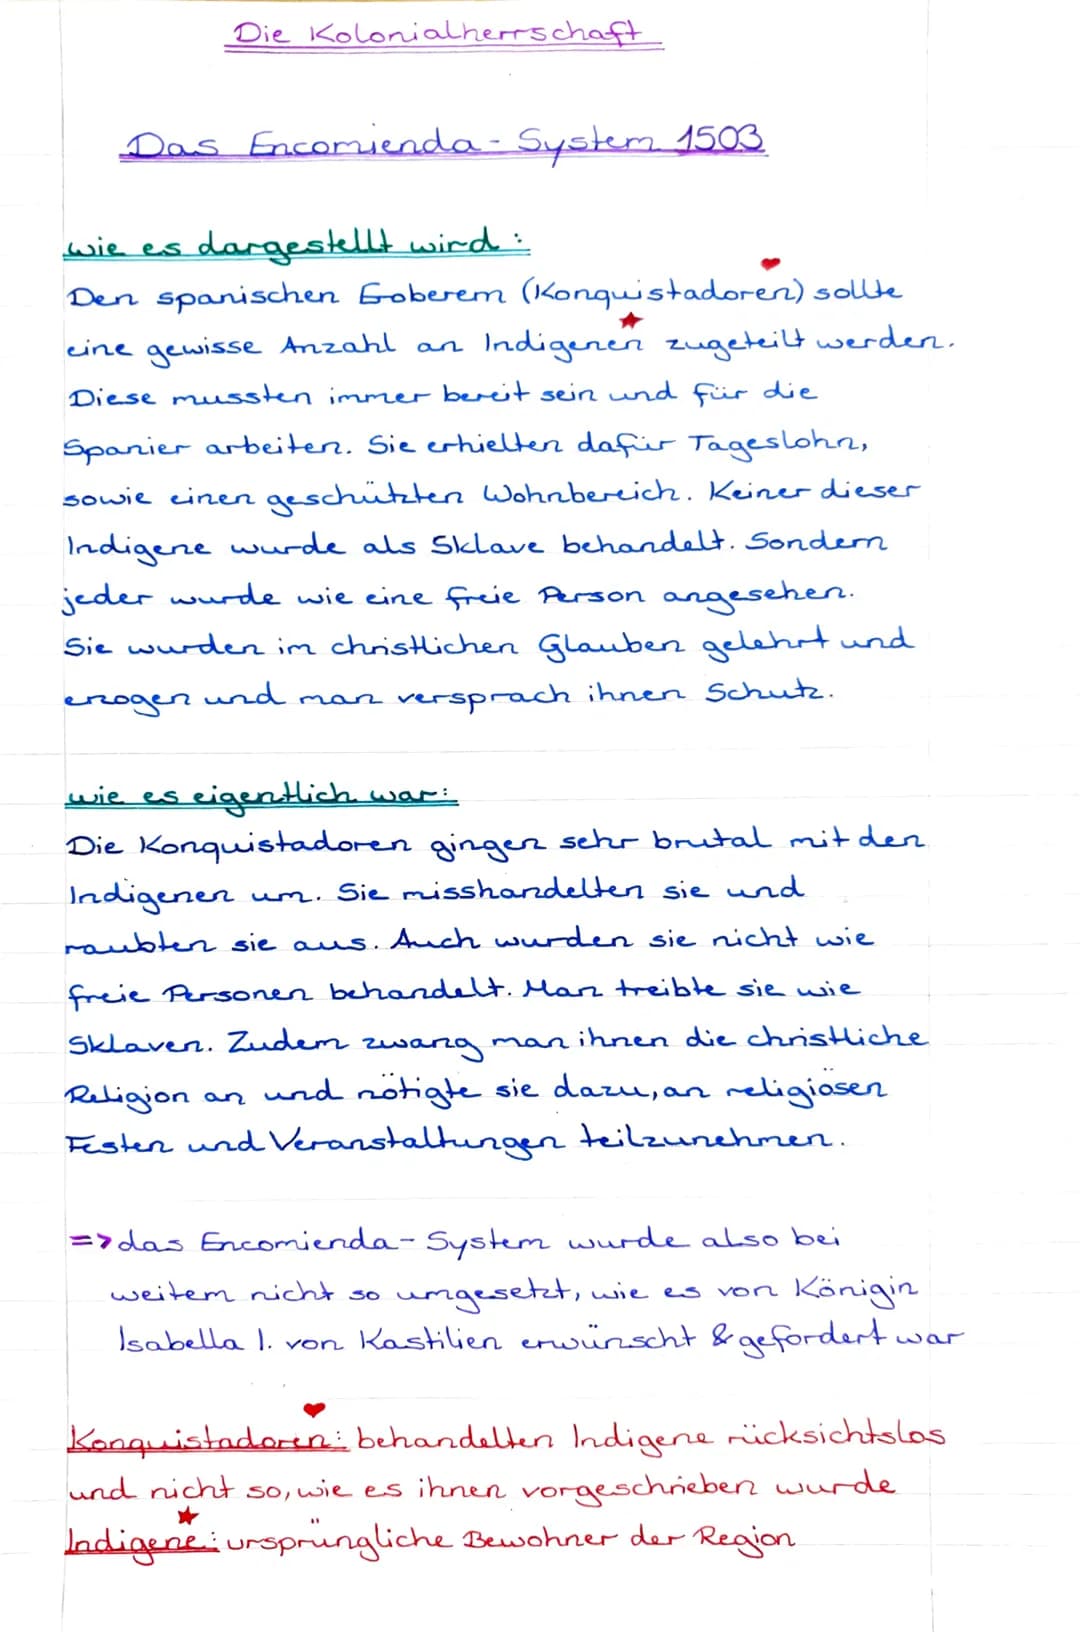 Die Kolonialherrschaft
Das Encomienda-System 1503
wie es dargestellt wird:
Den spanischen Eoberern (Konquistadoren) sollte
eine gewisse Anzahl an Indigenen zugeteilt werden.
Diese mussten immer bereit sein und für die
Spanier arbeiten. Sie erhielten dafür Tageslohn,
sowie einen geschützten Wohnbereich. Keiner dieser
Indigene wurde als Sklave behandelt. Sondern
jeder wurde wie eine freie Person angesehen.
Sie wurden im christlichen Glauben gelehrt und
erzogen und man versprach ihnen Schutz.
wie es eigentlich war:
Die Konquistadoren gingen sehr brutal mit den
Indigenen um. Sie misshandelten sie und
raubten sie aus. Auch wurden sie nicht wie
freie Personen behandelt. Man treibte sie wie
Sklaven. Zudem zwang man ihnen die christliche
Religion an und nötigte sie dazu, an religiösen
Festen und Veranstaltungen teilzunehmen.
=> das Encomienda-System wurde also bei
weitem nicht so umgesetzt, wie es von Königin
Isabella I. von Kastilien erwünscht & gefordert war
Konquistadoren: behandelten Indigene rücksichtslos
und nicht so, wie es ihnen vorgeschrieben wurde
Indigene: ursprüngliche Bewohner der Region